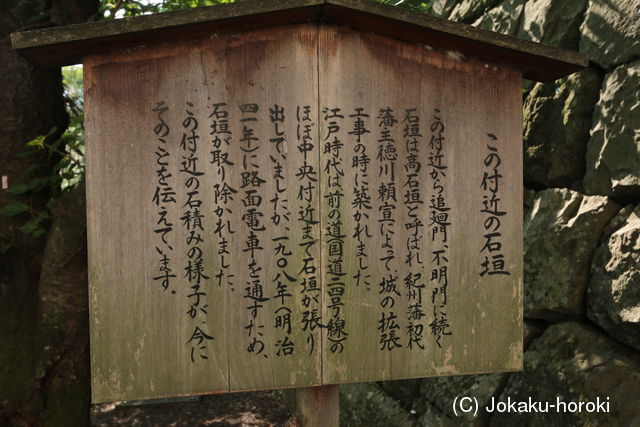 この付近の石垣
この付近から追廻門、不明門に続く
石垣は高石垣と呼ばれ、紀州藩初代
藩主徳川頼宣によって、城の拡張
工事の時に築かれました。
江戸時代は、前の道（国道二四号線）の
ほぼ中央付近まで石垣が張り
出していましたが、一九〇八年（明治
四一年）に路面電車を通すため、
石垣が取り除かれました。
この付近の石積みの様子が、今に
そのことを伝えています。
(C) Jokaku-horoki